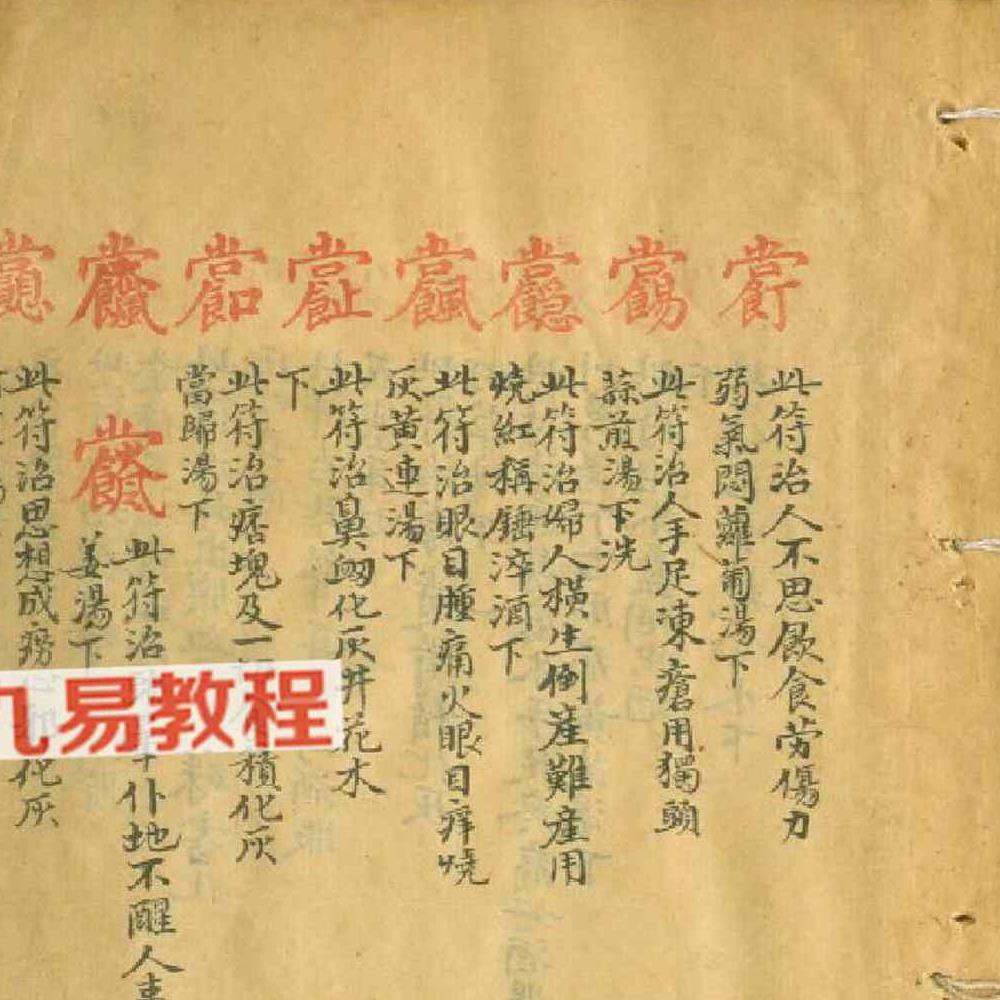 此符治人不思飲食劳傷力
弱氣悶蘿蔔湯下
此符治人手足凍瘡用獨頭
蒜煎湯下洗
此符治婦人横生倒産難産用
燒紅稱錘淬酒下
此符治眼目腫痛火眼目痒燒
灰黄連湯下
此符治鼻衂化灰井花水
下
此符治痞塊及一積化灰
當歸湯下
此符治仆地不醒人事
姜湯下
此符治思想成痨化灰
九易教程